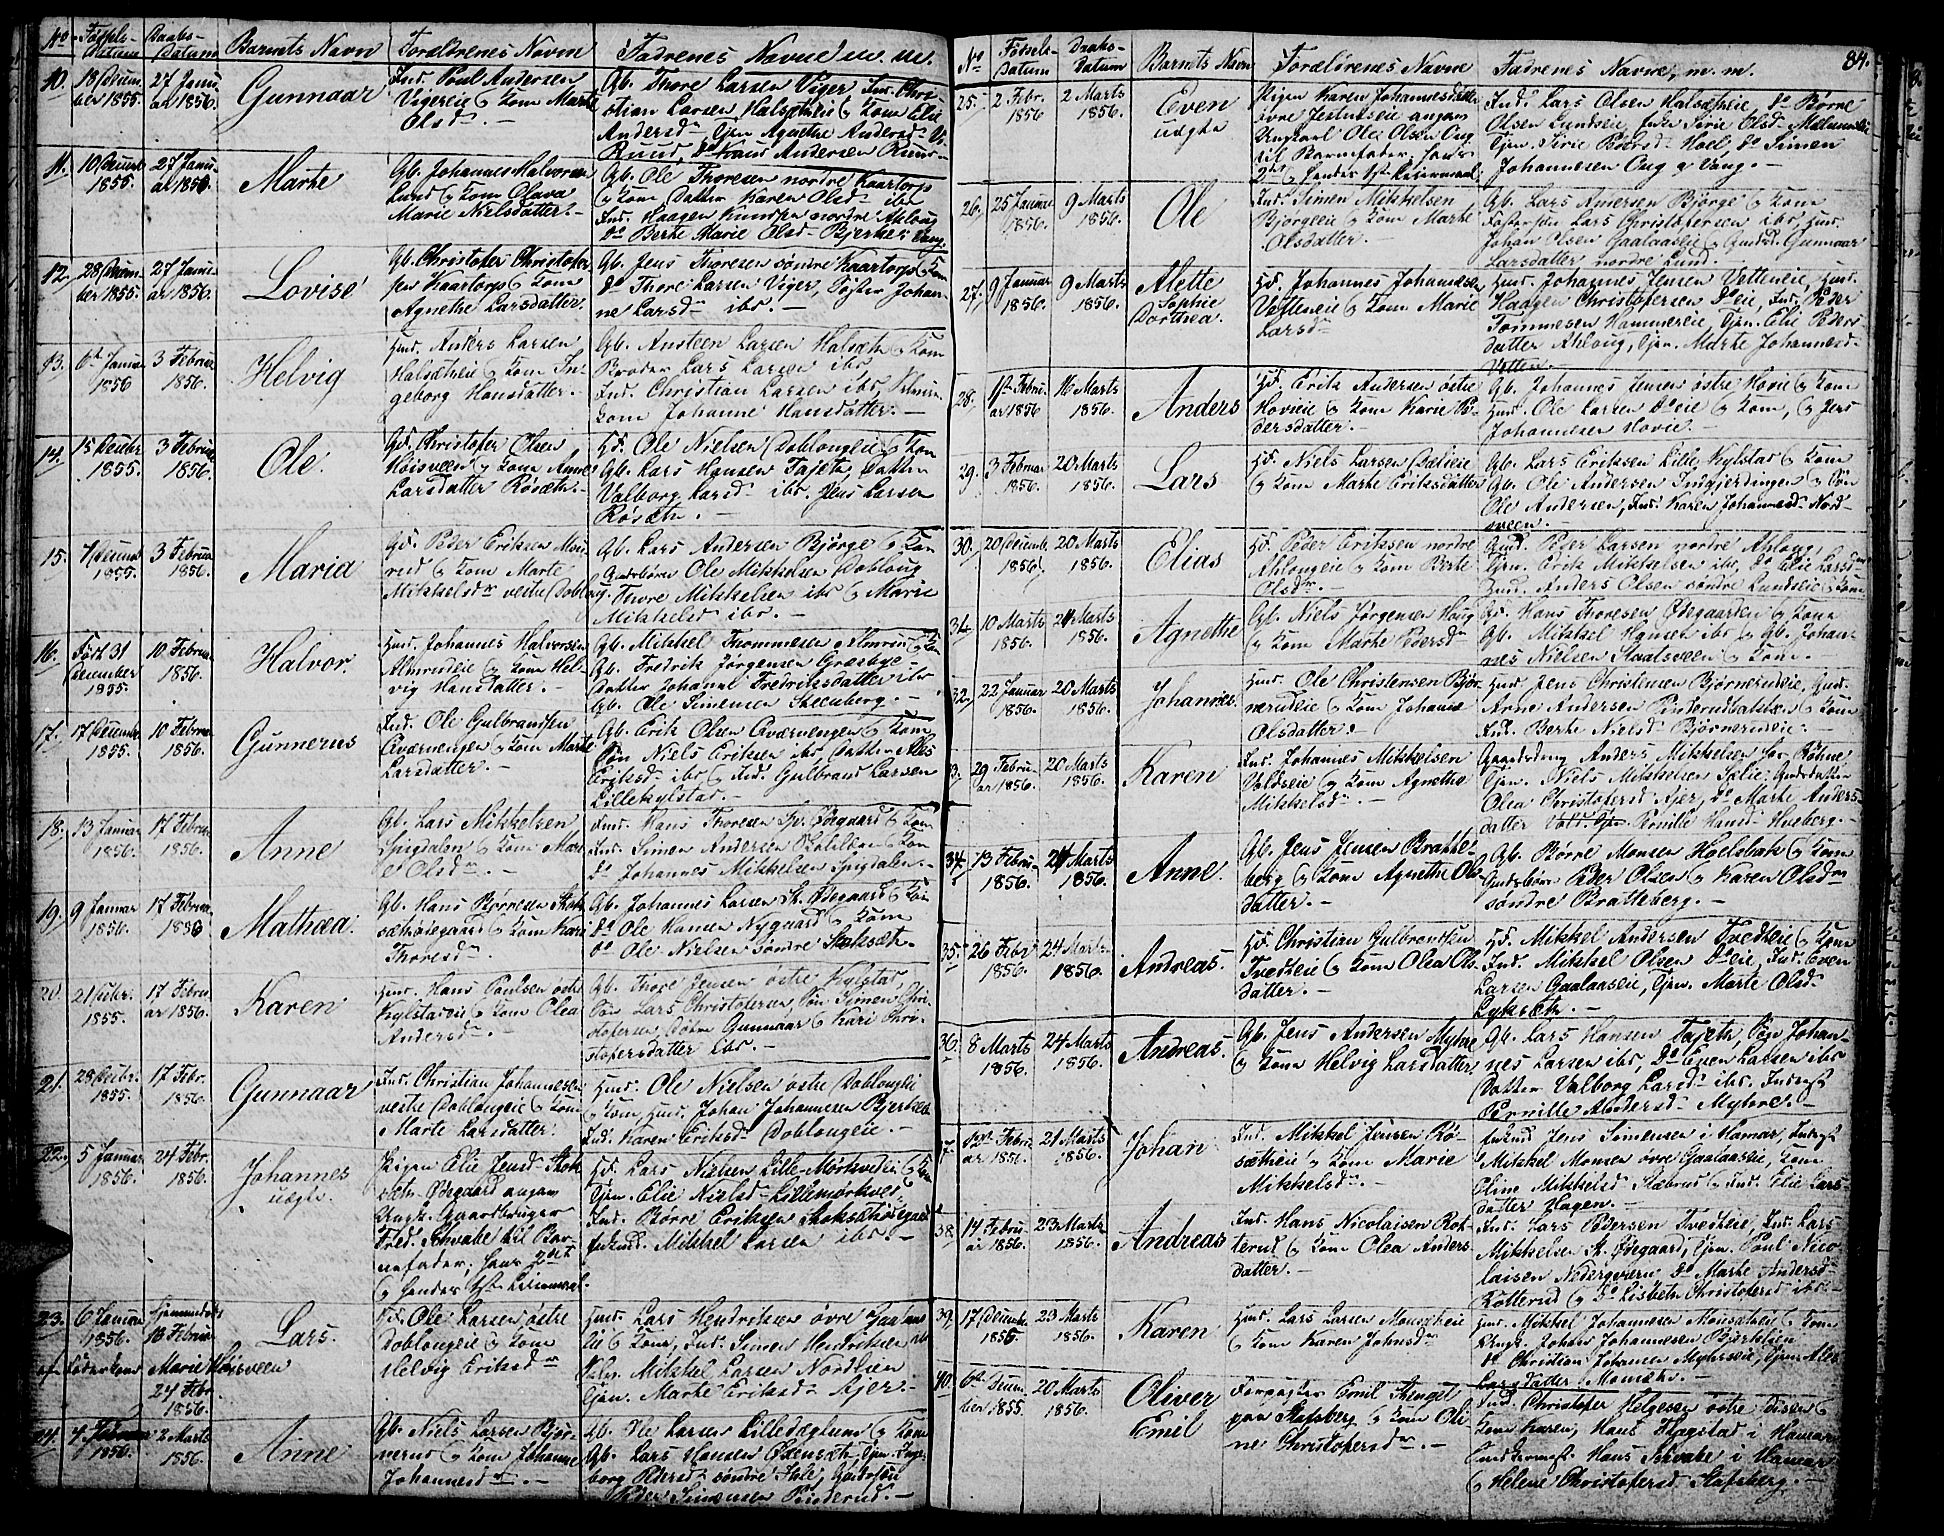 No Fødsels-Datum Daabs-Datum Barnets Navn Forældrenes Navne Fadrenes Navne m. m.
10. 13 Decem-
ber 1855. 27 Janu-
ar 1856. Gunnaar
Ind. Poul Andersen
Vigereie og Kone Marthe
Olsd. -
Gb. Thore Larsen Viger, Ind. Chri-
stian Larsen Halsætheie og Kone Elie
Andersd.
Ruud, Andersen Ruud -
11. 10 Decemb.
1855. 27 Janu-
ar 1856. Marthe
Gb. Johannes Halvorsen
Lund og Kone Olava
Marie Nielsdatter. -
Gb. Ole Thoresen nordre Kaartorp
og Kone, Datter Karen Olsd. ibr.
Ind. Haagen Knudsen nordre Ahlong
Do Berthe Marie Olsd. Bjerke i Vang.
12. 28 Decem-
ber 1855. 27 Janu-
ar 1856. Lovise
Gb. Christofer Christofer-
sen Kaartorp og Kone
Agnethe Larsdatter.
Gb. Jens Thoresen søndre Kaartorp og Kone
Do Thore Larsen Viger, Søster Johan-
ne Larsd. ibr. -
13. 6te Januar
1856 3 Februar
1856. Helvig
Huusd. Anders Larsen
Halsætheie og Kone In-
geborg Hansdatter. -
Gb. Austeen Larsen Halsæth og Kone
Broder Lars Larsen ibr.
Ind. Christian Larsen ibr.
Kone Johanne Hansdatter. -
14. 15 Decbr.
1855. 3 Februar
1856. Ole.
Gb. Christofer Olsen
Høisveen og Kone Anne
Larsdatter Røsæth. -
Hd. Ole Nielsen Doblougeie og Kone
Gb. Lars Hansen Tajet, Datter
Valborg Larsd. ibr. Jens Larsen
Røsæth. -
15. 7 Decemb.
1855. 3 Februar
1856. Maria
Peder Eriksen
og Kone Marte
Mikkelsdr vestre Doblong.
Gb. Lars Andersen Bjørge og Kone
Gaardsbørn Ole Mikkelsen Doblong
Tevre Mikkelsen ibr. og Marie
Mikkelsd. ibr. -
16. Født 31
December
1855. 10 Februar
1856. Halvor.
Huusd. Johannes Halvorsen
Almrudeie og Kone Hel-
vig Hansdatter. -
Gb. Mikkel Thommesen Almrud og Kone
Gb. Fredrik Jørgensen Græsbye
Datter Johanne Fredriksdatter ibr.
Gb. Ole Simensen Steenberg. -
17. 17 Decemb.
1855. 10 Februar
1856. Gunnerus
Ind. Ole Gulbrandsen
Qværvengen og Kone Marthe
Larsdatter. -
Gb. Erik Olsen Qværvengen og Kone
Søn Niels Eriksen ibr., Datter Alis
Eriksd. ibr. og Ind. Gulbrand Larsen
Lillekylstad. -
18. 13 Januar
1856. 17 Februar
1856. Anne
Gb. Lars Mikkelsen
Spigdalen og Kone Mari-
e Olsdr. -
Ind. Hans Thoresen Ødegaard og Kone
Ind. Simen Andersen og Kone
Do Johannes Mikkelsen Spigdalen. -
19. 9 Januar
1856. 17 Februar
1856 Mathæa.
Gb. Hans Børresen Stok-
sæthødegaard og Kone Kari
Thoresd.
Gb. Johannes Larsen St. Ødegaard og Kone
Do Ole Hansen Nygaard og Kone
Do Ole Nielsen søndre Stoksæth -
20. 21 Decbr.
1855. 17 Febru-
ar 1856. Karen
Huusd. Hans Paulsen østre
Kylstadeie og Kone Olea
Andersd. -
Gb. Thore Jensen østre Kylstad,
Søn Lars Christofersen, Søn Simen Chri-
stofersen, Døtre Gunnaar og Kari Chri-
stofersdatter ibr. -
21. 28 Decbr.
1855. 17 Febr.
1856. Gunnaar
Ind. Christian Johannesen
vestre Doblougeie og Kone
Marte Larsdatter.
Huusd. Ole Nielsen østre Doblougeie
og Kone, Huusd. Johan Johannesen Bjerkeeie
Ind. Karen Eriksd. Doblougeie. -
22. 5 Januar
1856. 24 Febr.
1856. Johannes
uægte.
Pigen Elie Jensd. Stok-
sæth Ødegaard angav
Ungk. Gaardbruger
Fred. Schwabe til Bar-
nefader, hans 2det
og hendes 1ste Leiermaal.
Hd. Lars Nielsen Lille-Mørkvedeie og Kone
Tjen. Elie Nielsd. Lillemørkved.
Ind. Børre Eriksen Stoksæthødegaard
Mikkel Larsen ibr. -
23. 6 Januar
1856. hjemmedøbt
13 Februar Lars.
af Jordemoder Marie Høisveen
24 Febr.
1856.
Hd. Ole Larsen østre
Doblougeie og Kone
Helvig Eriksdr
Huusd. Lars Hendriksen øvre Gaalaas-
eie og Kone, Ind. Simen Hendriksen ibr.
Mikkel Larsen Nordlien
Tjen. Marthe Eriksd. Ajer. -
24. 4 Februar
1856. 2 Marts
1856. Anne
Gb. Niels Larsen Bjør-
nerud og Kone Johanne
Johannesd. -
Gb. Ole Larsen Lilledæglum og Kone
Gb. Lars Hansen Tjen. Inge-
borg Pedersd. søndre
Peder Simensen Pinderud. -
84.
No Fødsels-Datum Daabs-Datum Barnets Navn Forældrenes Navne Fadrenes Navne, m. m.
25. 2 Febr.
1856 2 Marts
1856. Even
uægte
Pigen Karen Johannesdatter
øvre Jesnæseie angav
Ungkarl Ole Olsen Ong
til Barnefader, hans
2det og hendes 1ste Leiermaal
Ind. Lars Olsen Halsætheie, Do Børre
Olsen Lundeie, Inds. Sirie Olsd. Melumeie
Tjen. Sirie Pedersd. Hoel, Do Simen
Johannesen Ong i Vang. -
26. 25 Januar
1856. 9 Marts
1856. Ole
Ind. Simen Mikkelsen
Bjørgeeie og Kone Marthe
Olsdatter. -
Gb. Lars Andersen Bjørge og Kone
Fostersøn Lars Christofersen ibr. Huusd.
Johan Olsen Gaalaaseie og Gaardsd. Gunnaar
Larsdatter nordre Lund. -
27. 9 Januar
1856. 9 Marts
1856. Alette
Sophie
Dorthea.
Hd. Johannes Johannesen
Vetteneie og Kone Marie
Larsdr
Huusd. Johannes Jensen Vetteneie, Huusd.
Haagen Christofersen Do eie, Ind. Peder
Tommesen Hammereie, Tjen. Elie Peders-
datter Ahlong, Tjen. Marthe Johannesd.
Vetten. -
28. 1ste Febru-
ar 1856 16 Marts
1856. Anders
Hd. Erik Andersen østre
Hovieie og Kone Karie Pe-
dersdatter. -
Gb. Johannes Jensen østre Hovie og Kone
Huusd. Ole Larsen Do eie og Kone, og Jens
Johannesen Hovie. -
29. 3 Februar
1856. 20 Marts
1856. Lars
Hd. Niels Larsen Daleeie
og Kone Marthe Eriksdatter
Gb. Lars Eriksen Lille Kylstad og Kone
Gb. Ole Andersen Indgjerdingen og Søn
Ole Andersen, Ind. Karen Johannesd. Nord-
sveen. -
30. 20 Decemb.
1856 20 Marts
1856. Elias
Hd. Peder Eriksen nordre
Ahlongeie og Kone Berte
Olsdr -
Huusd. Peder Larsen nordre Ahlong,
Tjen. Erik Mikkelsen ibr. Do Elie Larsdr
Huusd. Anders Olsen søndre Lundeie og Kone
31. 10 Marts
1856. 24 Marts
1856. Agnethe
Gb. Niels Jørgensen Houg
og Kone Marthe Pedersdr
Hd. Hans Thoresen Ødegaarden og Kone
Gb. Mikkel Hansen ibr. og Gb. Johan-
nes Nielsen Staatsveen og Kone. -
32. 22 Januar
1856. 20 Marts
1856. Johannes.
Huusd. Ole Christensen Bjør-
nerudeie og Kone Johanne
Olsdatter.
Huusd. Jens Christensen Bjørnerudeie, Huusd.
Arne Andersen Pinderudbakken og Kone
Ind. Berthe Nielsd. Bjørnerudeie. -
33. 29 Febru-
ar 1856. 20 Marts
1856. Karen
Ind. Johannes Mikkelsen
Voldseie og Kone Agnethe
Mikkelsd. -
Gaardsdreng Anders Mikkelsen
Tjen. Niels Mikkelsen Gaardsdatter
Olea Christofersd. Ajer, Do Marthe Anders-
datter Vold. Pernille Hansd. Hveberg. -
34. 13 Febru-
1856. 24 Marts
1856. Anne.
Gb. Jens Jensen Bratte-
berg og Kone Agnethe Ols-
datter. -
Gb. Børre Monsen Hoelsbak og Kone
Gaardsbørn Peder Olsen og Karen Olsdr
søndre Bratteberg. -
35. 26 Febr.
1856. 24 Marts
1856. Andreas.
Hd. Christian Gulbrandsen
Tvedteie og Kone Olea Ols-
datter. -
Hd. Mikkel Andersen Tvedteie og Kone
Ind. Mikkel Olsen Do eie, Ind. Even
Larsen Gaalaaseie, Tjen. Marte Olsd.
Lyksæth. -
36. 8 Marts
1856. 24 Marts
1856. Andreas.
Gb. Jens Andersen Myhre
og Kone Helvig Larsdatter.
Gb. Lars Hansen Tajeth, Søn Johan-
nes Larsen ibr, Do Even Larsen ibr.
Datter Valborg Larsd. ibr. Inderst
Pernille Andersd. Myhre. -
37. 12te Febru-
ar 1856. 21 Marts
1856. Johan
Ind. Mikkel Jensen Rø-
sætheie og Kone Marie
Mikkelsd. -
Jens Simensen i Hamar, Inderst
Mikkel Monsen øvre Gaalaaseie, Kone
Oline Mikkelsd. Stæbrud og Ind. Elie Lars-
datter Hagen. -
38. 14 Febru-
ar 1856. 23 Marts
1856. Andreas
Ind. Hans Nicolaisen Rot-
terud og Kone Olea Anders-
datter. -
Ind. Lars Pedersen Tvedteie, Ind. Lars
Mikkelsen St. Ødegaard, Tjen. Poul Nico-
laisen Nedergværn, Do Marthe Andersdr
Rotterud og Do Lisbeth Christofersd. ibr. -
39. 17 Decemb.
1855 23 Marts
1856. Karen
Huusd. Lars Larsen Monsetheie
og Kone Karen Johnsdr
Huusd. Mikkel Johannesen Monsætheie og Kone
Ungk. Johan Johannesen Bjørkelien
Do Christian Johansen Myhrseie, Tjen. Ales
Larsdatter Monsæth. -
40. 6te Decem-
ber 1855. 20 Marts
1856. Oliver
Emil
Forpagter Emil Stengel
paa Stafsberg og Kone Oli-
ne Christofersdr -
Ind. Christofer Helgesen østre Disen og
Kone Karen, Hans Flagstad i Hamar
Hans Schwabe i Hamar
og Helene Christofersd. Stafsberg. -